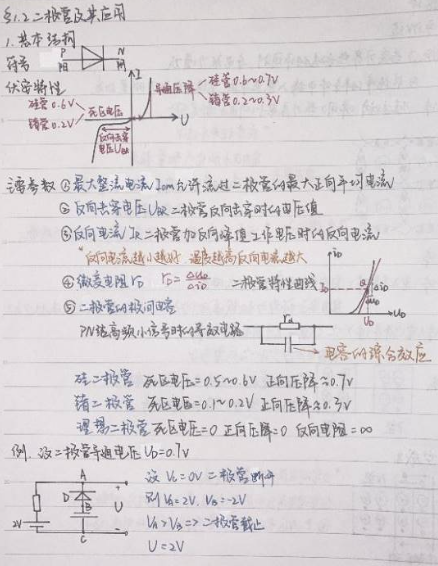 §1.2 二极管及其应用
1. 基本结构
符号 P N
阳 阴
伏安特性
I
硅管0.6V
锗管0.2V
死区电压
导通压降
硅管0.6~0.7V
锗管0.2~0.3V
U
反向击穿
电压UBR
主要参数 ①最大整流电流IOM允许流过二极管的最大正向平均电流
②反向击穿电压UBR 二极管反向击穿时的电压值
③反向电流IR 二极管加反向峰值工作电压时的反向电流
*反向电流越小越好 温度越高反向电流越大
④微变电阻rD rD=ΔUD/ΔiD 二极管特性曲线
iD
ID Q ΔiD
ΔUD
UD uD
⑤二极管的极间电容
PN结高频小信号时的等效电路
rd
电容的综合效应
硅二极管 死区电压=0.5~0.6V 正向压降≈0.7V
锗二极管 死区电压=0.1~0.2V 正向压降≈0.3V
理想二极管 死区电压=0 正向压降=0 反向电阻=∞
例. 设二极管导通电压UD=0.7V
A
D B
2V
C
+ U -
设VC=0V 二极管断开
则VA=2V, VB=-2V
VA>VB => 二极管截止
U=2V